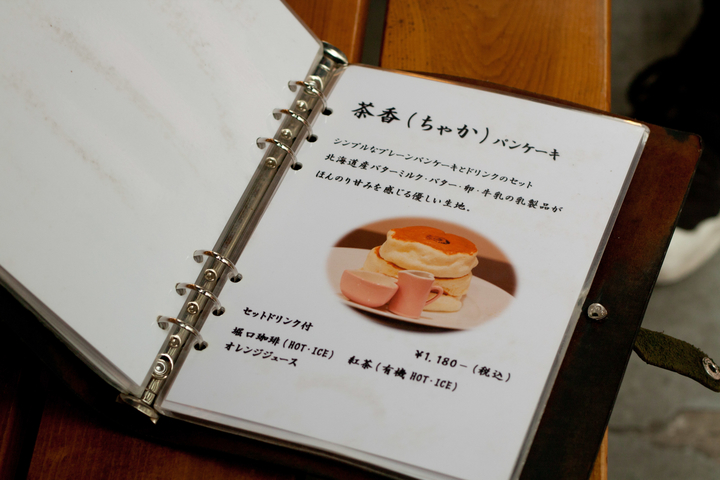 茶香(ちゃか)パンケーキ
シンプルなプレーンパンケーキとドリンクのセット
北海道産バターミルク・バター・卵・牛乳の乳製品が
ほんのり甘みを感じる優しい生地。
セットドリンク付
¥1,180-(税込)
堀口珈琲(HOT・ICE) 紅茶(有機 HOT・ICE)
オレンジジュース